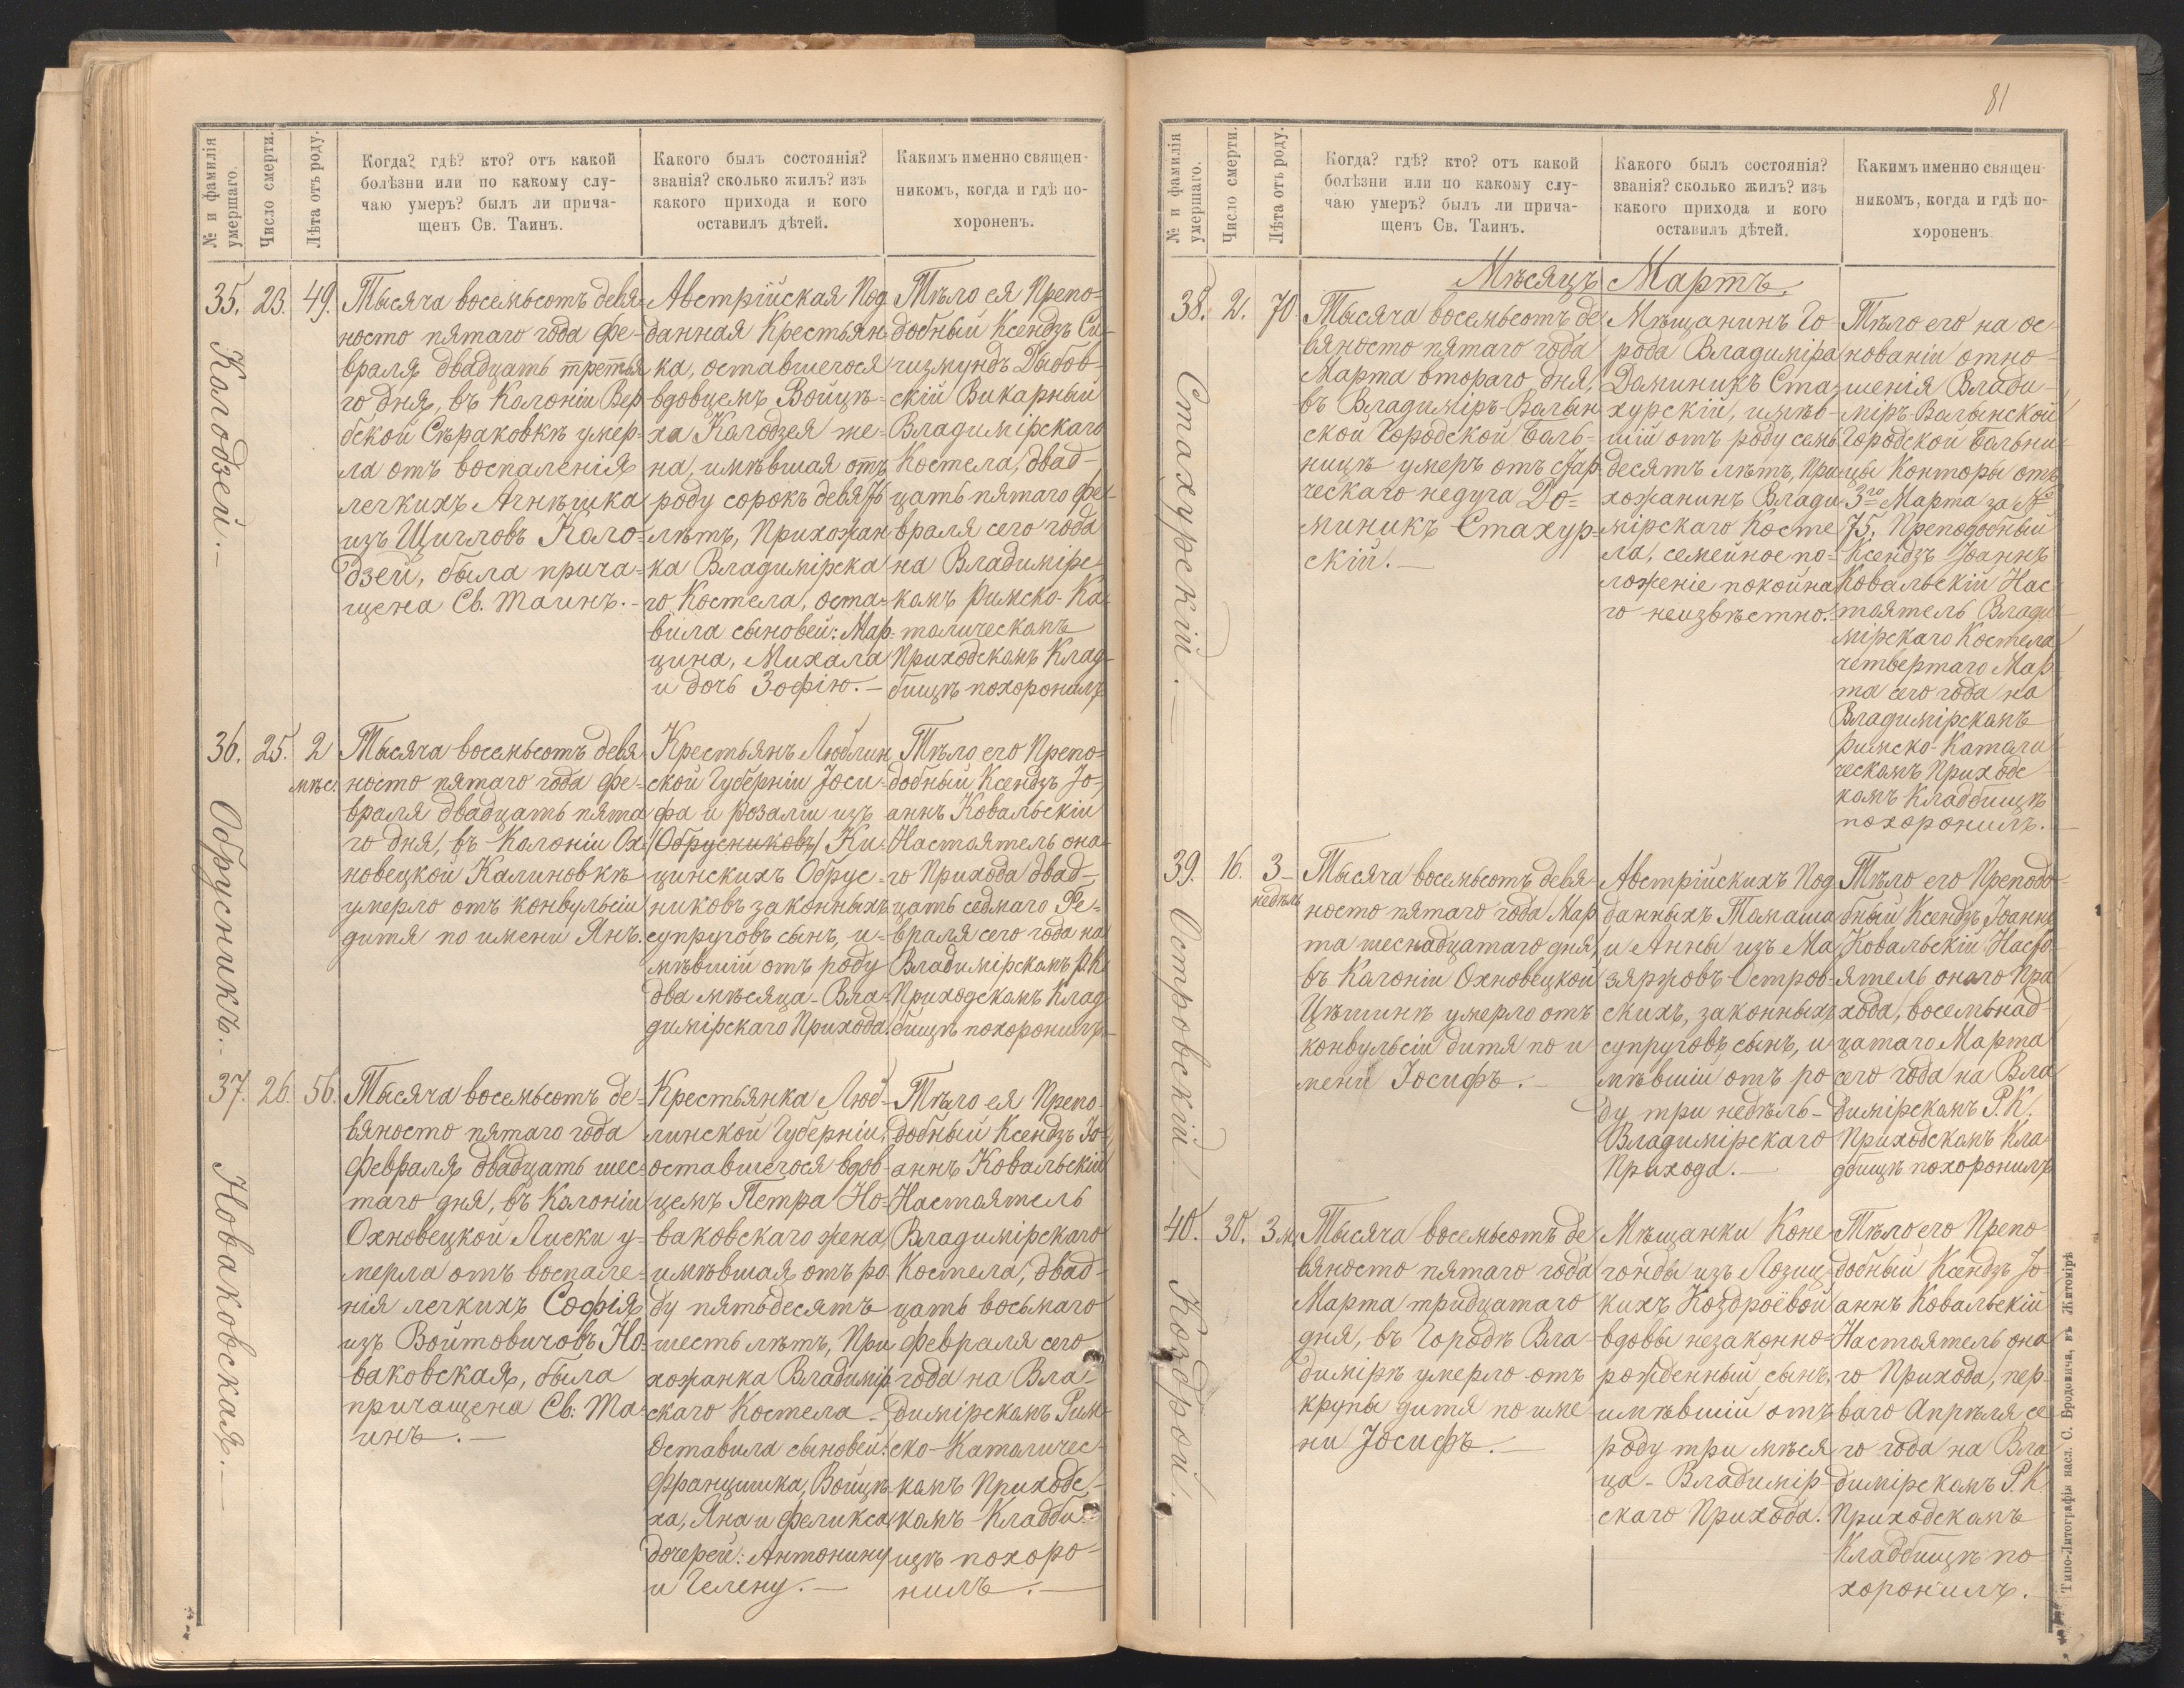 № и фамилія
умершаго.
Число смерти.
Лѣта отъ роду.
Когда? гдѣ? кто? отъ какой
болѣзни или по какому слу-
чаю умеръ? былъ ли прича-
щенъ Св. Таинъ.
Какого былъ состоянія?
званія? сколько жилъ? изъ
какого прихода и кого
оставилъ дѣтей.
Какимъ именно священ-
никомъ, когда и гдѣ по-
хороненъ.
35.
Колодзей.-
23.
49.
Тысяча восемьсотъ девя-
носто пятаго года Фе-
враля двадцать третья
го дня, въ Колоніи Вер
бской Сѣраковкѣ умер-
ла отъ воспаленія
легкихъ Агнѣшка
изъ Щигловъ Коло-
дзей, была прича-
щена Св. Таинъ.-
Австрійская Под
данная Крестьян
ка, оставшегося
вдовцемъ Войцѣ-
ха Колодзея же-
на, имѣвшая отъ
роду сорокъ девять
лѣтъ, Прихожан
ка Владимірска
го Костела, оста-
вила сыновей: Мар-
цина, Михала
и дочь Зофію.-
Тѣло ея Препо-
добный Ксендзъ Си-
гизмундъ Дыбов-
скій Викарный
Владимірскаго
Костела, двад-
цать пятаго Фе-
враля сего года
на Владимірс-
комъ Римско-Ка-
толическомъ
Приходскомъ Клад-
бищѣ похоронилъ
36.
Обрусникъ.-
25.
2
мѣс.
Тысяча восемьсотъ девя
носто пятаго года Фе-
враля двадцать пята
го дня, въ Колоніи Ох-
новецкой Калиновкѣ
умерло отъ конвульсіи
дитя по имени Янъ.
Крестьянъ Люблин
ской Губерніи Іоси-
фа и Розаліи изъ
/Обрусниковъ/ Ки-
цинскихъ Обрус-
никовъ законныхъ
супруговъ сынъ, и-
мѣвшій отъ роду
два мѣсяца - Вла-
димірскаго Прихода.
Тѣло его Препо-
добный Ксендзъ Іо-
аннъ Ковальскій
Настоятель она-
го Прихода двад-
цать седмаго Фе-
враля сего года на
Владимірскомъ Р.К.
Приходскомъ Клад-
бищѣ похоронилъ.-
37.
Новаковская.-
26.
56.
Тысяча восемьсотъ де-
вяносто пятаго года
Февраля двадцать шес-
таго дня, въ Колоніи
Охновецкой Лиски у-
мерла отъ воспале-
нія легкихъ Софія
изъ Войтовичовъ Но-
ваковская, была
причащена Св: Та-
инъ.-
Крестьянка Люб-
линской Губерніи,
оставшегося вдов-
цемъ Петра Но-
ваковскаго жена,
имѣвшая отъ ро
ду пятьдесятъ
шесть лѣтъ, При
хожанка Владимір
скаго Костела -
Оставила сыновей:
Францишка, Войцѣ-
ха, Яна и Феликса
дочерей: Антонину
и Гелену.-
Тѣло ея Препо-
добный Ксендзъ Іо-
аннъ Ковальскій
Настоятель
Владимірскаго
Костела, двад-
цать восьмаго
Февраля сего
года на Вла-
димірскомъ Рим-
ско-Католичес-
комъ Приходс-
комъ Кладби-
щѣ похоро-
нилъ.-
81
№ и фамилія
умершаго.
Число смерти.
Лѣта отъ роду.
Когда? гдѣ? кто? отъ какой
болѣзни или по какому слу-
чаю умеръ? былъ ли прича-
щенъ Св. Таинъ.
Какого былъ состоянія?
званія? сколько жилъ? изъ
какого прихода и кого
оставилъ дѣтей.
Какимъ именно священ-
никомъ, когда и гдѣ по-
хороненъ
Мѣсяцъ Мартъ.
38.
Стахурскій.-
2.
70
Тысяча восемьсотъ де
вяносто пятаго года
Марта втораго дня,
въ Владиміръ-Волын
ской Городской Боль-
ницѣ умеръ отъ стар
ческаго недуга До-
миникъ Стахур-
скій.-
Мѣщанинъ Го-
рода Владиміра
Доминикъ Ста-
хурскій, имѣв-
шій отъ роду семь
десятъ лѣтъ, При
хожанинъ Влади
мірскаго Косте
ла, семейное по-
ложеніе покойна
го неизвѣстно.
Тѣло его на ос-
нованіи отно-
шенія Влади-
міръ-Волынской
Городской Больни-
цы Конторы отъ
3го Марта за №
75, Преподобный
Ксендзъ Іоаннъ
Ковальскій Нас-
тоятель Влади
мірскаго Костела
четвертаго Мар
та сего года на
Владимірскомъ
Римско-Католи
ческомъ Приходс
комъ Кладбищѣ
похоронилъ.-
39.
Островскій.-
16.
3
недѣль
Тысяча восемьсотъ девя
носто пятаго года Мар
та шеснадцатаго дня,
въ Колоніи Охновецкой
Цѣшинѣ умерло отъ
конвульсіи дитя по и
мени Іосифъ.-
Австрійскихъ Под
данныхъ Томаша
и Анны изъ Ма
зяржовъ Остров-
скихъ, законныхъ
супруговъ сынъ, и
мѣвшій отъ ро
ду три недѣль-
Владимірскаго
Прихода.-
Тѣло его Преподо-
бный Ксендзъ Іоаннъ
Ковальскій Насто-
ятель онаго При
хода, восемьнад-
цатаго Марта
сего года на Вла
димірскомъ Р.К.
Приходскомъ Кла
дбищѣ похоронилъ
40.
Коздрой.
30.
3 м.
Тысяча восемьсотъ де
вяносто пятаго года
Марта тридцатаго
дня, въ Городѣ Вла-
димірѣ умерло отъ
крупы дитя по име
ни Іосифъ.-
Мѣщанки Коне
гонды изъ Лозиц-
кихъ Коздроёвой
вдовы незаконно-
рожденный сынъ,
имѣвшій отъ
роду три мѣся
ца - Владимір-
скаго Прихода.
Тѣло его Препо
добный Ксендзъ Іо-
аннъ Ковальскій
Настоятель она
го Прихода, пер-
ваго Апрѣля се
го года на Вла
димірскомъ Р.К
Приходскомъ
Кладбищѣ по
хоронилъ.
Типо-Литографія насл. С. Бродовича, въ Житомірѣ